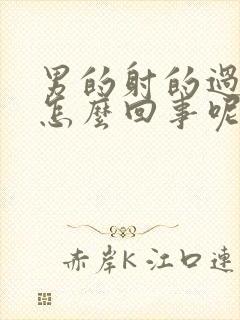 男的射的過
怎麼回事呢
赤岸K 江口連